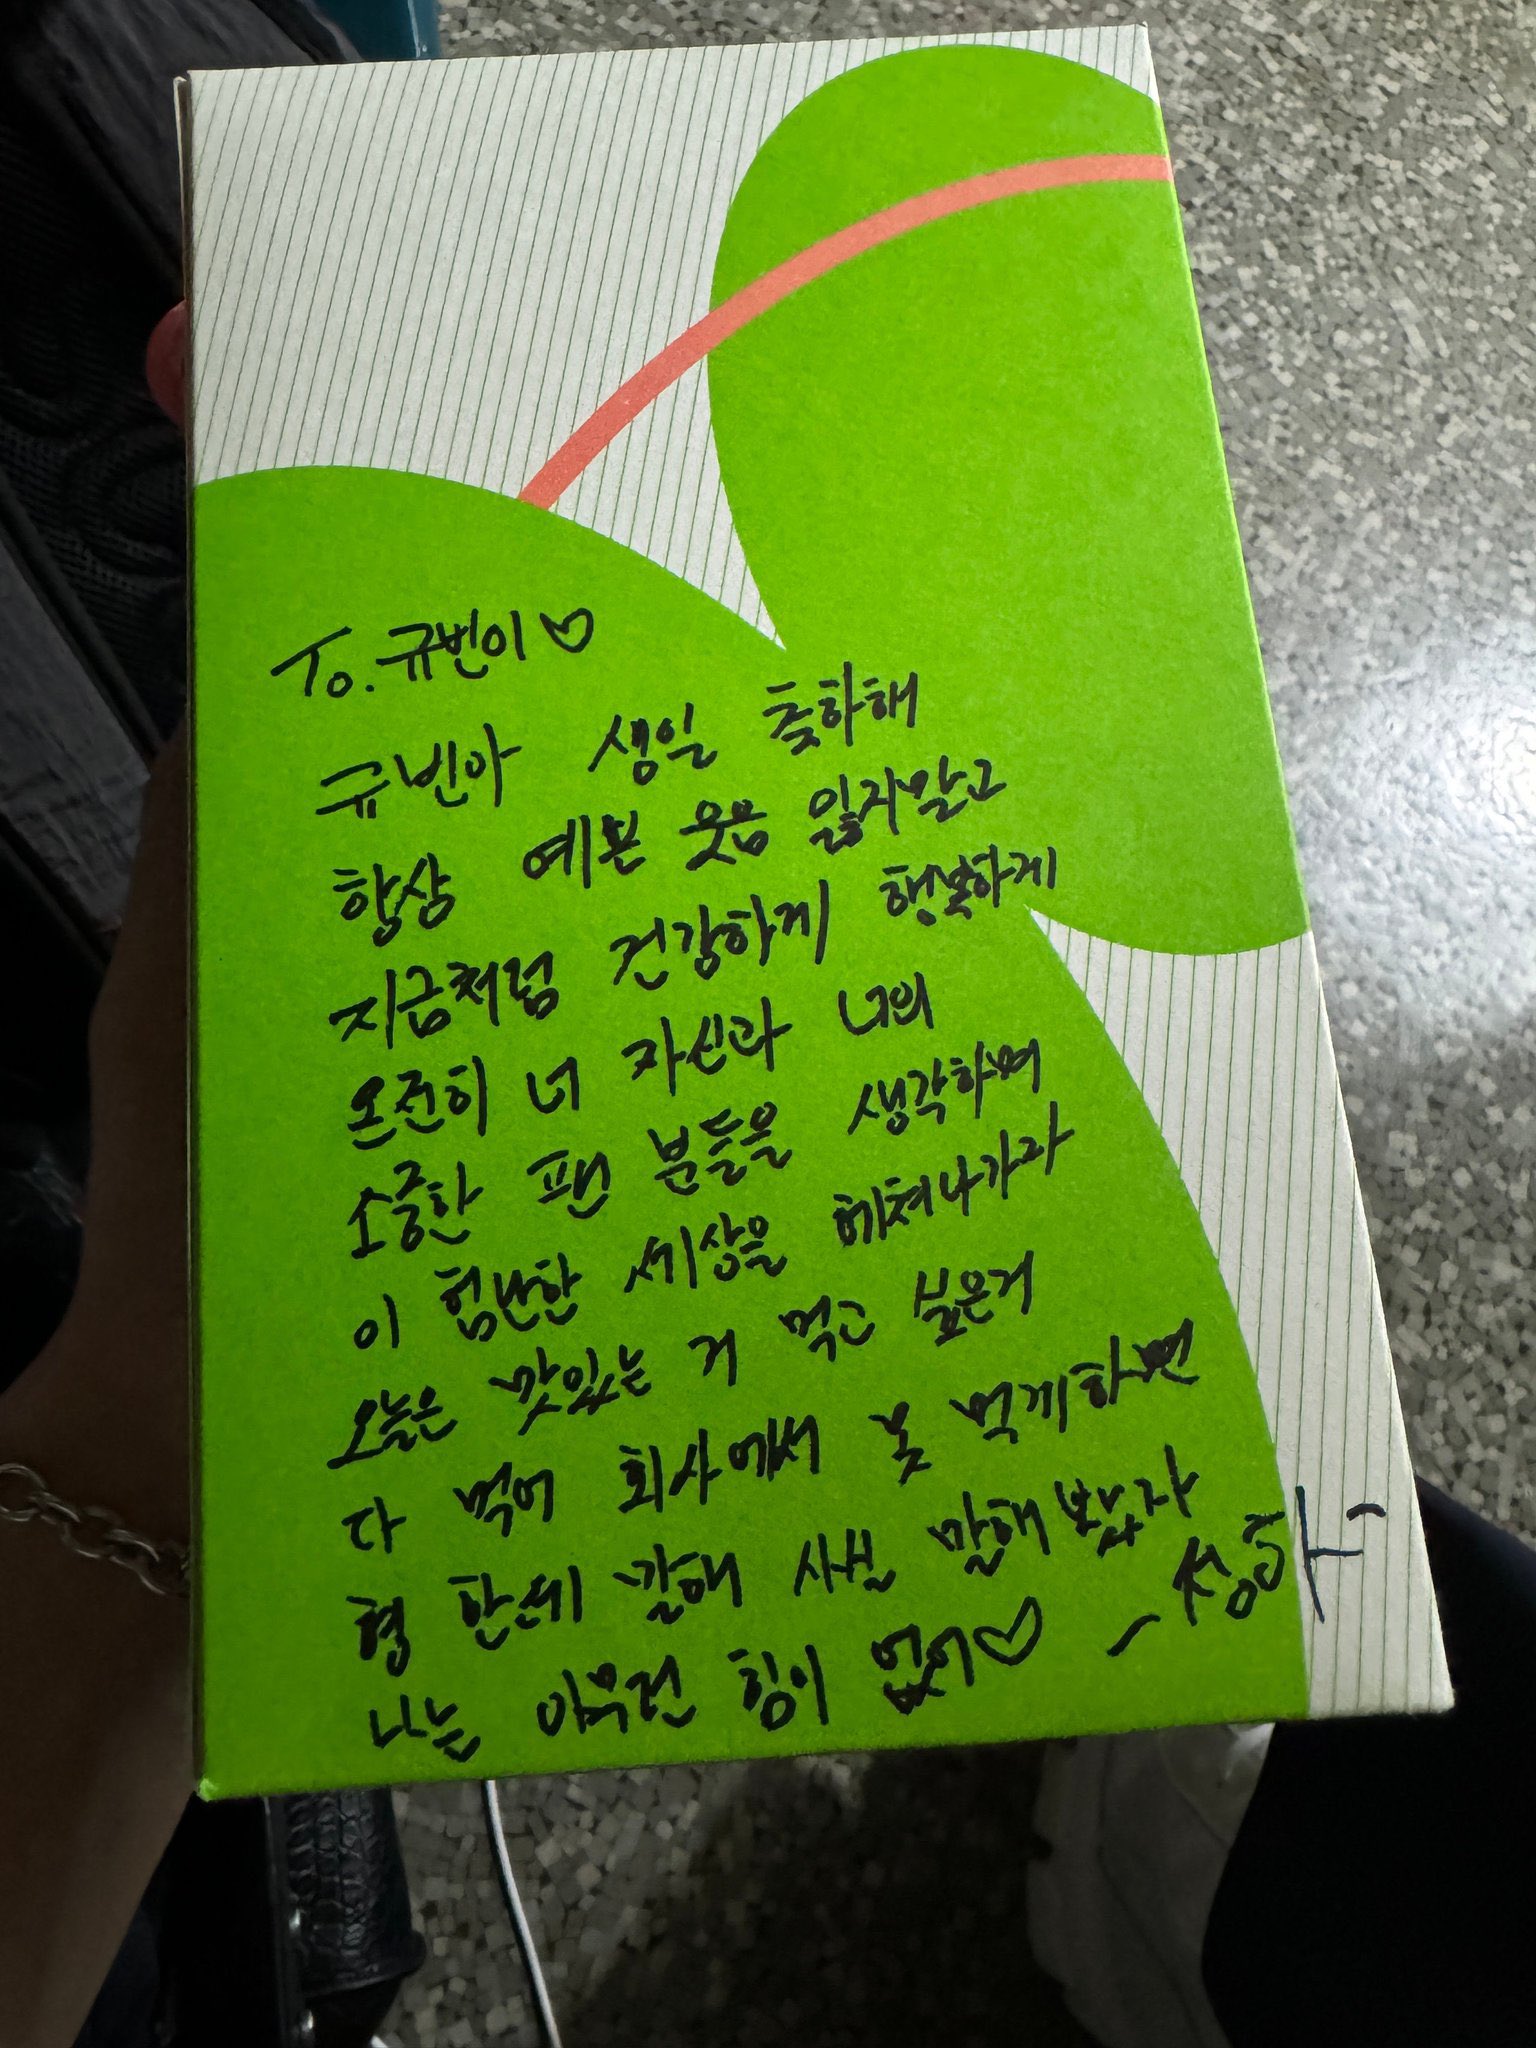 To. 규빈이♡
규빈아 생일 축하해
항상 예쁜 웃음 잃지말고
지금처럼 건강하게 행복하게
온전히 너 자신과 너의
소중한 팬 분들을 생각하며
이 험난한 세상을 헤쳐나가라
오늘은 맛있는 거 먹고 싶은거
다 먹어 회사에서 못 먹게하면
형 한테 말해 사실 말해 봤자
나는 아무런 힘이 없어♡